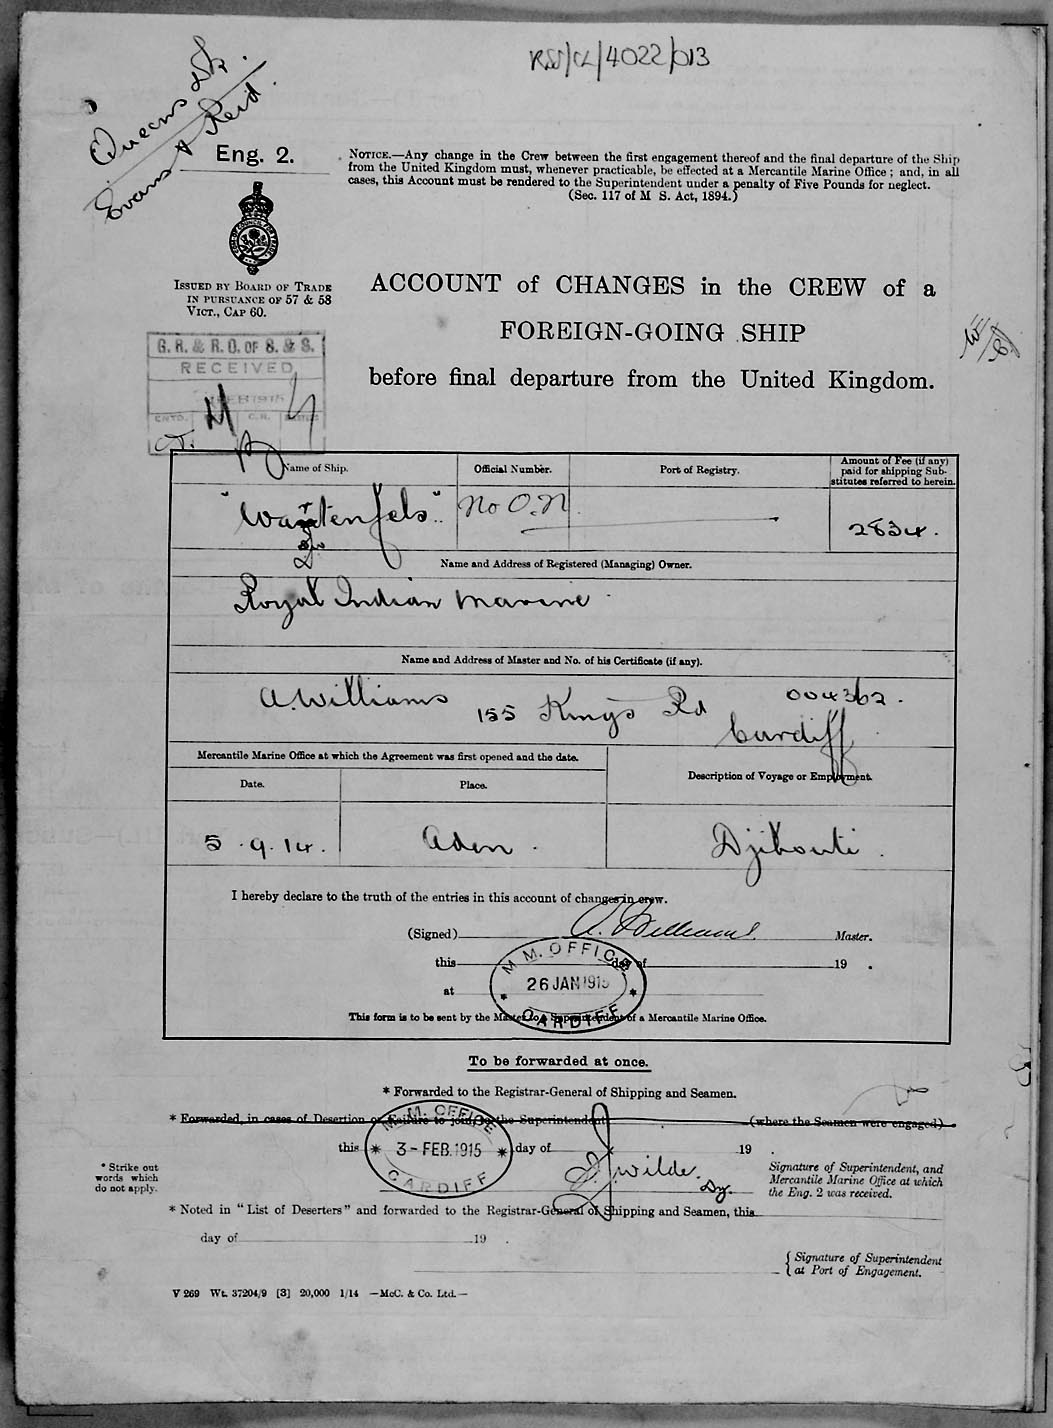 RSS/CL/4022/013
Queens Dk.
Evans & Reid.
Eng. 2.
NOTICE.—Any change in the Crew between the first engagement thereof and the final departure of the Ship
from the United Kingdom must, whenever practicable, be effected at a Mercantile Marine Office; and, in all
cases, this Account must be rendered to the Superintendent under a penalty of Five Pounds for neglect.
(Sec. 117 of M S. Act, 1894.)
ISSUED BY BOARD OF TRADE
IN PURSUANCE OF 57 & 58
VICT., CAP 60.
ACCOUNT of CHANGES in the CREW of a
FOREIGN-GOING SHIP
before final departure from the United Kingdom.
G. R. & R. O. OF S. & S.
RECEIVED
FEB 1915
Name of Ship.
Official Number.
Port of Registry.
Amount of Fee (if any)
paid for shipping Sub-
stitutes referred to herein.
"Wartenfels"
No O.N.
2834.
Name and Address of Registered (Managing) Owner.
Royal Indian Marine
Name and Address of Master and No. of his Certificate (if any).
A. Williams 155 Kings Rd 004362.
Cardiff
Mercantile Marine Office at which the Agreement was first opened and the date.
Description of Voyage or Employment.
Date.
Place.
5.9.14.
Aden.
Djibouti.
I hereby declare to the truth of the entries in this account of changes in crew.
(Signed) A. Williams. Master.
this day of 19 .
at
M. M. OFFICE
26 JAN 1915
CARDIFF
This form is to be sent by the Master to a Superintendent of a Mercantile Marine Office.
To be forwarded at once.
* Forwarded to the Registrar-General of Shipping and Seamen.
* Forwarded, in cases of Desertion or Failure to join, to the Superintendent (where the Seamen were engaged)
this day of 19 .
M. M. OFFICE
3 - FEB. 1915
CARDIFF
* Strike out
words which
do not apply.
J. Wilde. Dy.
Signature of Superintendent, and
Mercantile Marine Office at which
the Eng. 2 was received.
* Noted in "List of Deserters" and forwarded to the Registrar-General of Shipping and Seamen, this
day of 19 .
Signature of Superintendent
at Port of Engagement.
V 269 Wt. 37204/9 [3] 20,000 1/14 —McC. & Co. Ltd.—